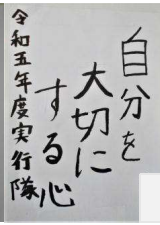 自分を
大切に
する心
令和五年度実行隊